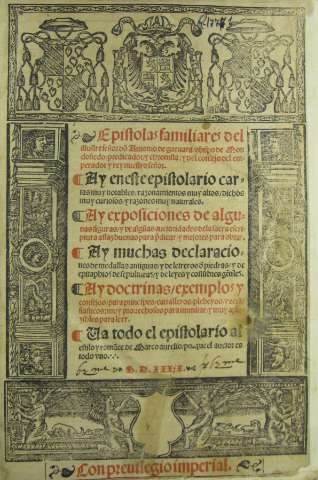 Epistolas familiares del
illustre señor dō Antonio de gueuara obispo de Mon
doñedo, predicador, y chronista, y del consejo del em
perador y rey nuestro señor.
¶ Ay en este epistolario car
tas muy notables, razonamientos muy altos, dichos
muy curiosos, y razones muy naturales.
¶ Ay exposiciones de algu
nas figuras, y de algūas auctoridades de la sacra escri
ptura assaz buenas para p̄dicar, y mejores para obrar.
¶ Ay muchas declaracio
nes de medallas antiguas, y de letreros d̄ piedras, y de
epitaphios de sepulturas, y de leyes y costūbres gētiles.
¶ Ay doctrinas, exemplos y
consejos, para principes, caualleros, plebeyos, y ecle
siasticos: muy prouechosos para imitar, y muy apa
zibles para leer.
¶ Ua todo el epistolario al
estilo y romāce de Marco aurelio, porque el auctor es
todo vno.
Con preuilegio imperial.